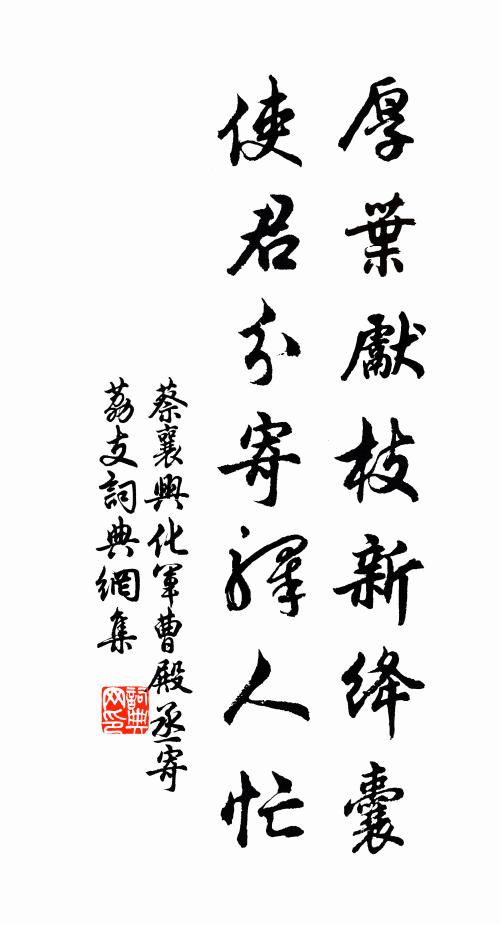 厚葉獻枝新絳囊
使君分寄驛人忙
蔡襄興化軍曹殿丞寄
荔支詞典網集
詞典
网印